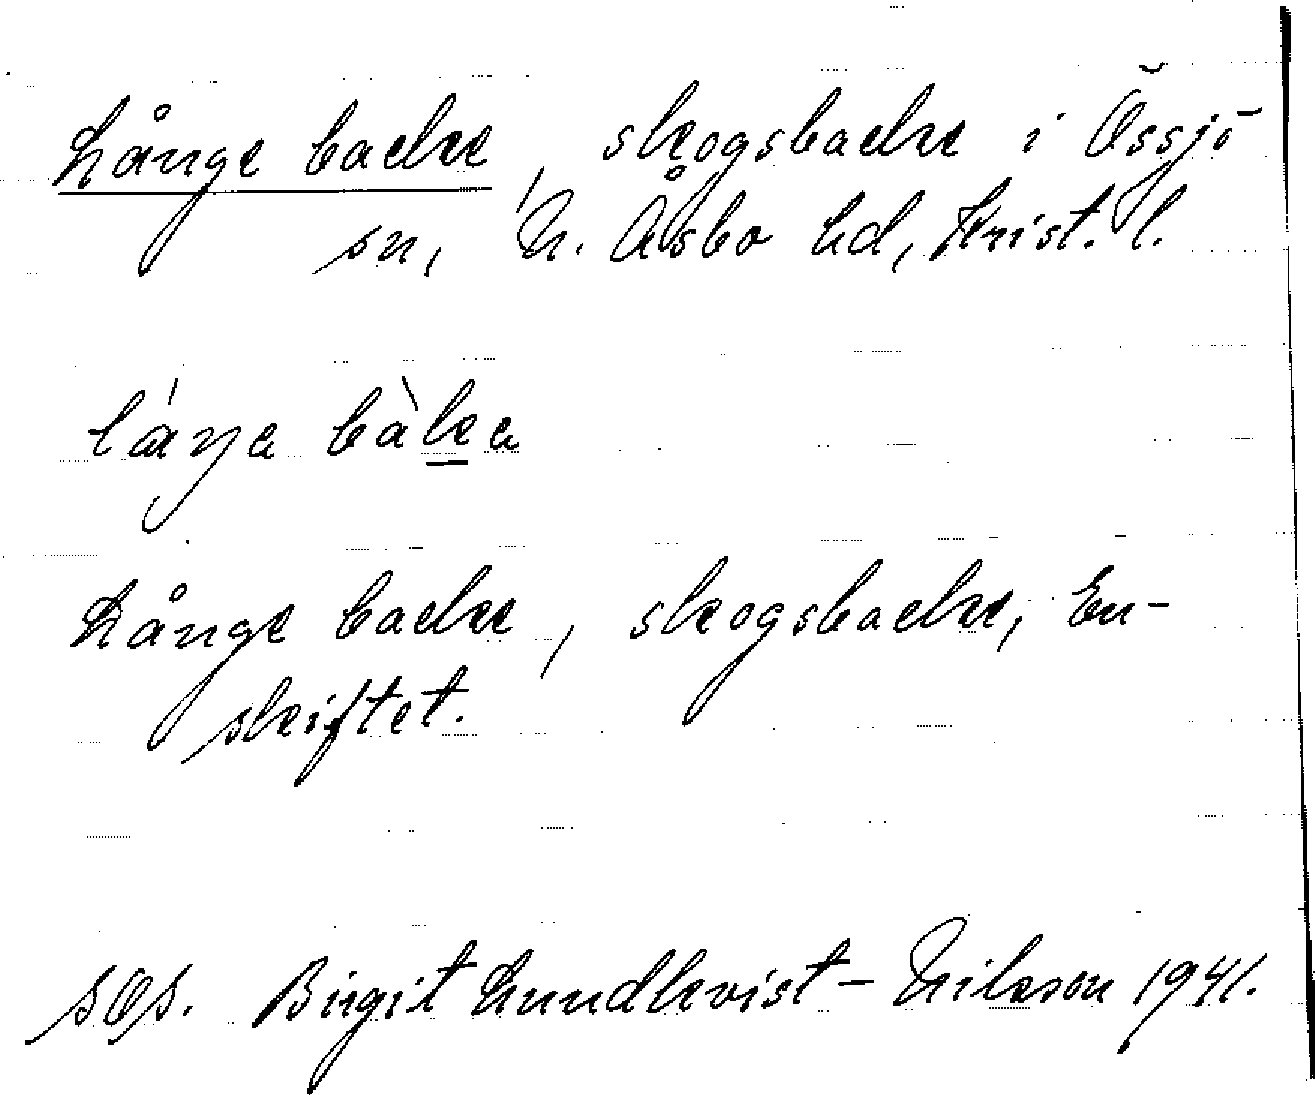 Långe backe, skogsbacke i Össjö
sn, N. Åsbo hd, Krist. l.
Långe backe, skogsbacke, En-
skiftet.
Birgit Lundkvist - Nilsson 1941.